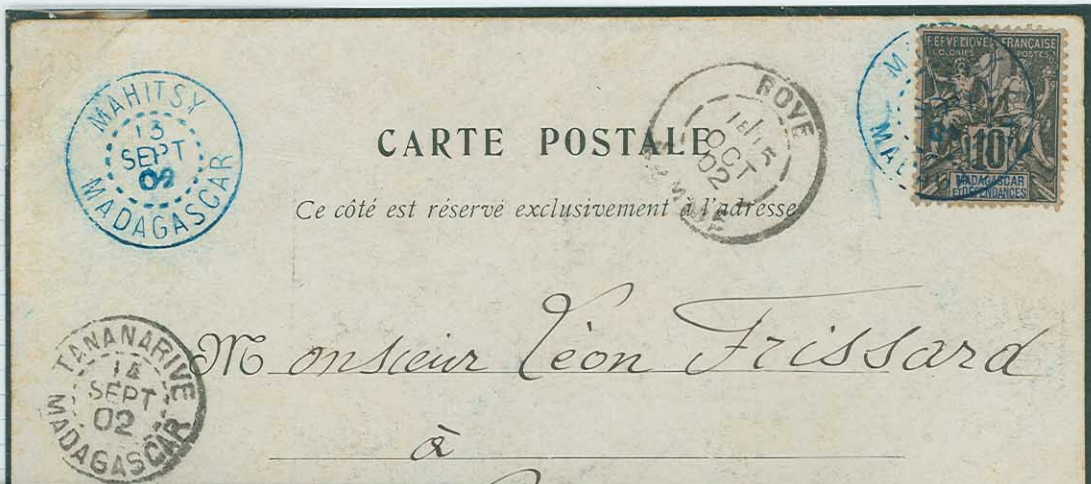 MAHITSY
13
SEPT
02
MADAGASCAR
CARTE POSTALE
Ce côté est réservé exclusivement à l'adresse
ROYE
15
OCT
02
SOMME
RÉPUBLIQUE FRANÇAISE
COLONIES POSTES
10
MADAGASCAR
ET DÉPENDANCES
TANANARIVE
14
SEPT
02
MADAGASCAR
Monsieur Léon Frissard
à